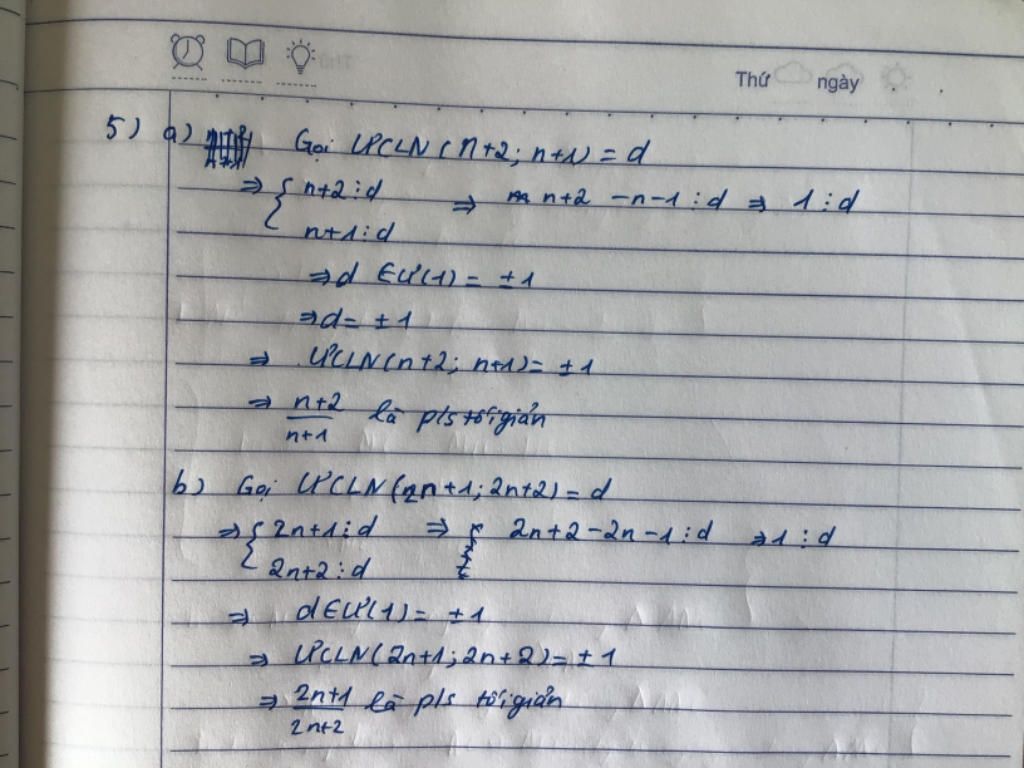 Thứ ngày
5) a) Gọi ƯCLN (n+2; n+1) = d
⇒ { n+2 ⋮ d ⇒ n+2 -n-1 ⋮ d ⇒ 1 ⋮ d
n+1 ⋮ d
⇒ d ∈ Ư(1) = ±1
⇒ d = ±1
⇒ ƯCLN(n+2; n+1) = ±1
⇒ n+2/n+1 là p/s tối giản
b) Gọi ƯCLN (2n+1; 2n+2) = d
⇒ { 2n+1 ⋮ d ⇒ 2n+2-2n-1 ⋮ d ⇒ 1 ⋮ d
2n+2 ⋮ d
⇒ d ∈ Ư(1) = ±1
⇒ ƯCLN(2n+1; 2n+2) = ±1
⇒ 2n+1/2n+2 là p/s tối giản